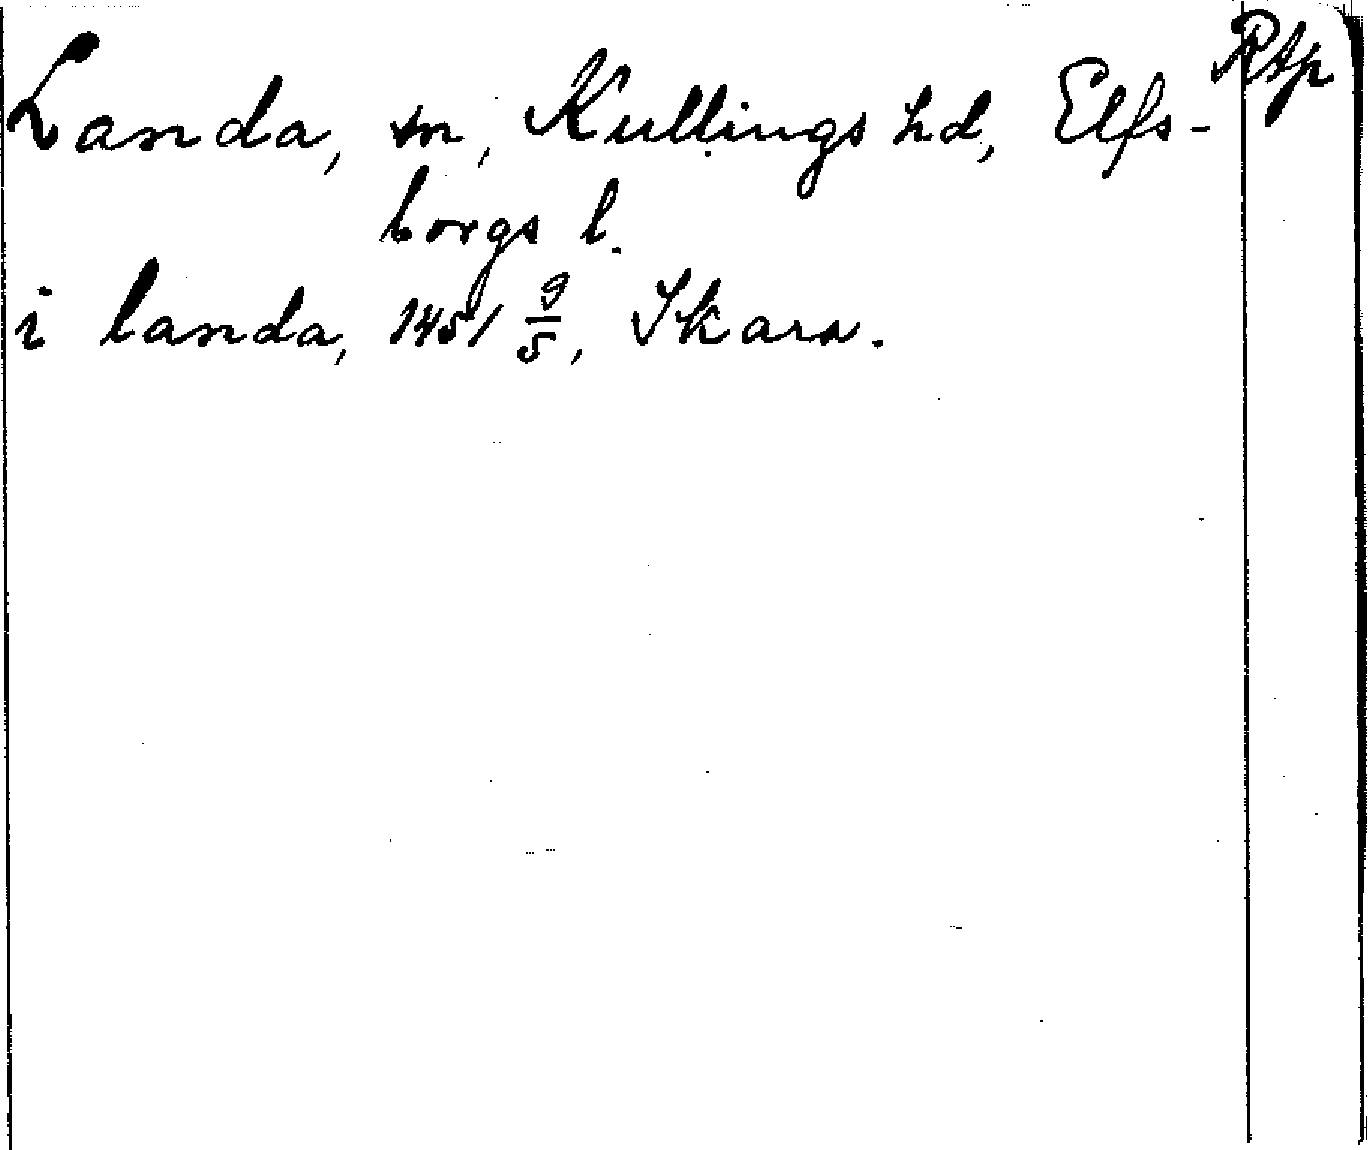 Rtp
Landa, sn, Kullings hd, Elfs-
borgs l.
i landa, 1451 9/5, Skara.